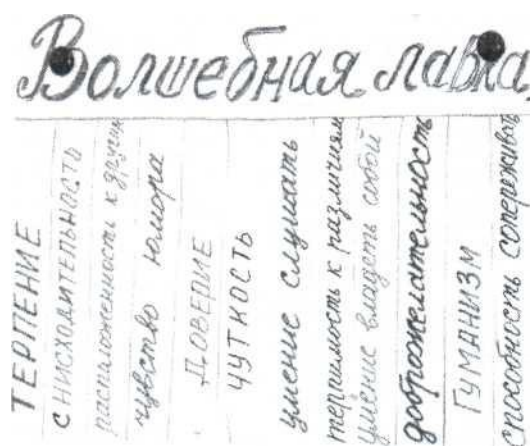 Волшебная лавка
ТЕРПЕНИЕ
СНИСХОДИТЕЛЬНОСТЬ
расположенность к другим
чувство юмора
ДОВЕРИЕ
ЧУТКОСТЬ
умение слушать
терпимость к различиям
умение владеть собой
доброжелательность
ГУМАНИЗМ
способность сопереживать